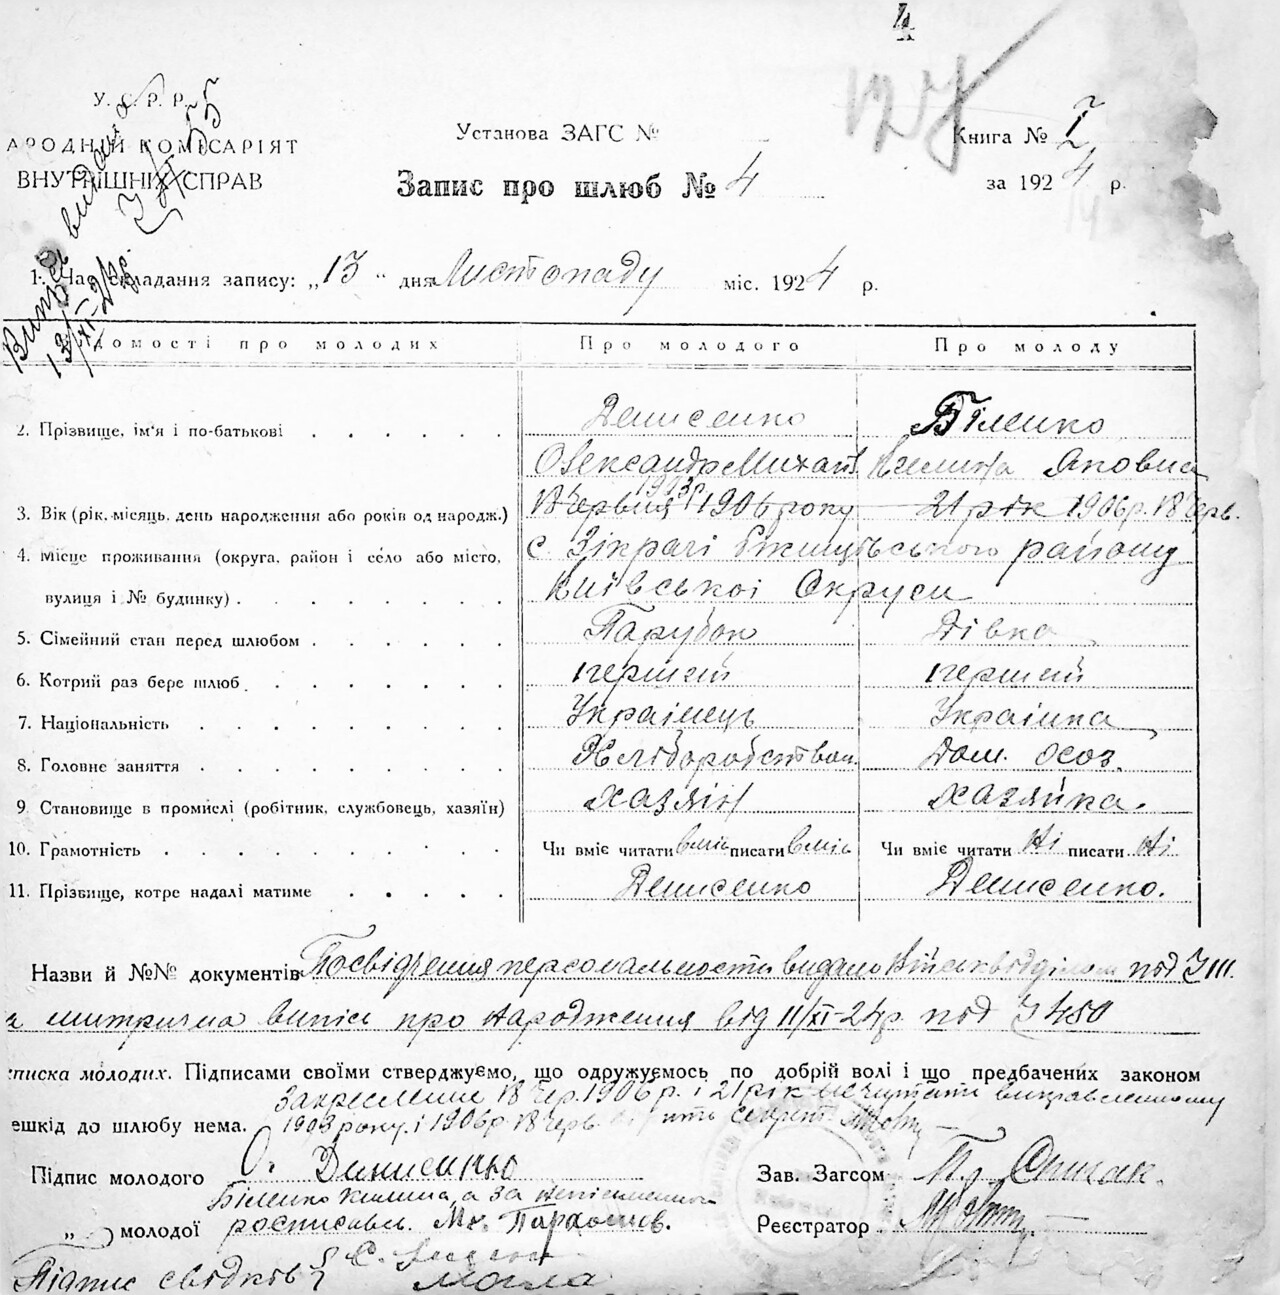 4
127
У. С. Р. Р.
АРОДНІЙ КОМІСАРІЯТ
ВНУТРІШНІХ СПРАВ
Установа ЗАГС №
Книга № I
Запис про шлюб № 4
за 1924 р.
Випись видана
13/XI-24р.
1. Час складання запису: „13“ дня Листопаду міс. 1924 р.
домості про молодих Про молодого Про молоду
Денисенко Біленко
2. Прізвище, ім'я і по-батькові
Олександр Михайл. Килина Яковна
1903р
3. Вік (рік, місяць, день народження або років од народж.) 18 Червня 1906 року 21 рік 1906р. 18 Черв.
4. Місце проживання (округа, район і село або місто, с. Зікрачі Ржищівського району
вулиця і № будинку) Київської Округи
5. Сімейний стан перед шлюбом Парубок Дівка
6. Котрий раз бере шлюб перший перший
7. Національність Украінець Украінка
8. Головне заняття Хліборобством. Дом. госп.
9. Становище в промислі (робітник, службовець, хазяїн) хазяін хазяйка.
10. Грамотність Чи вміє читати вміє писати вміє Чи вміє читати Ні писати Ні
11. Прізвище, котре надалі матиме Денисенко Денисенко.
Назви й №№ документів Посвідчення персональности видано Військвідділом під № 111.
а митрична випись про народження від 11/XI-24р. під № 450
списка молодих. Підписами своїми стверджуємо, що одружуємось по добрій волі і що предбачених законом
Закреслене 18 Чер. 1906 р. і 21 рік не читати виправленному
ешкід до шлюбу нема. 1903 року і 1906р 18 Черв. Секрет.
Підпис молодого О. Динисенко Зав. Загсом
Біленко Килина, а за неписьменною
„ молодої росписавсь. Мк. Пархомов. Реєстратор
Підпис свідків С.